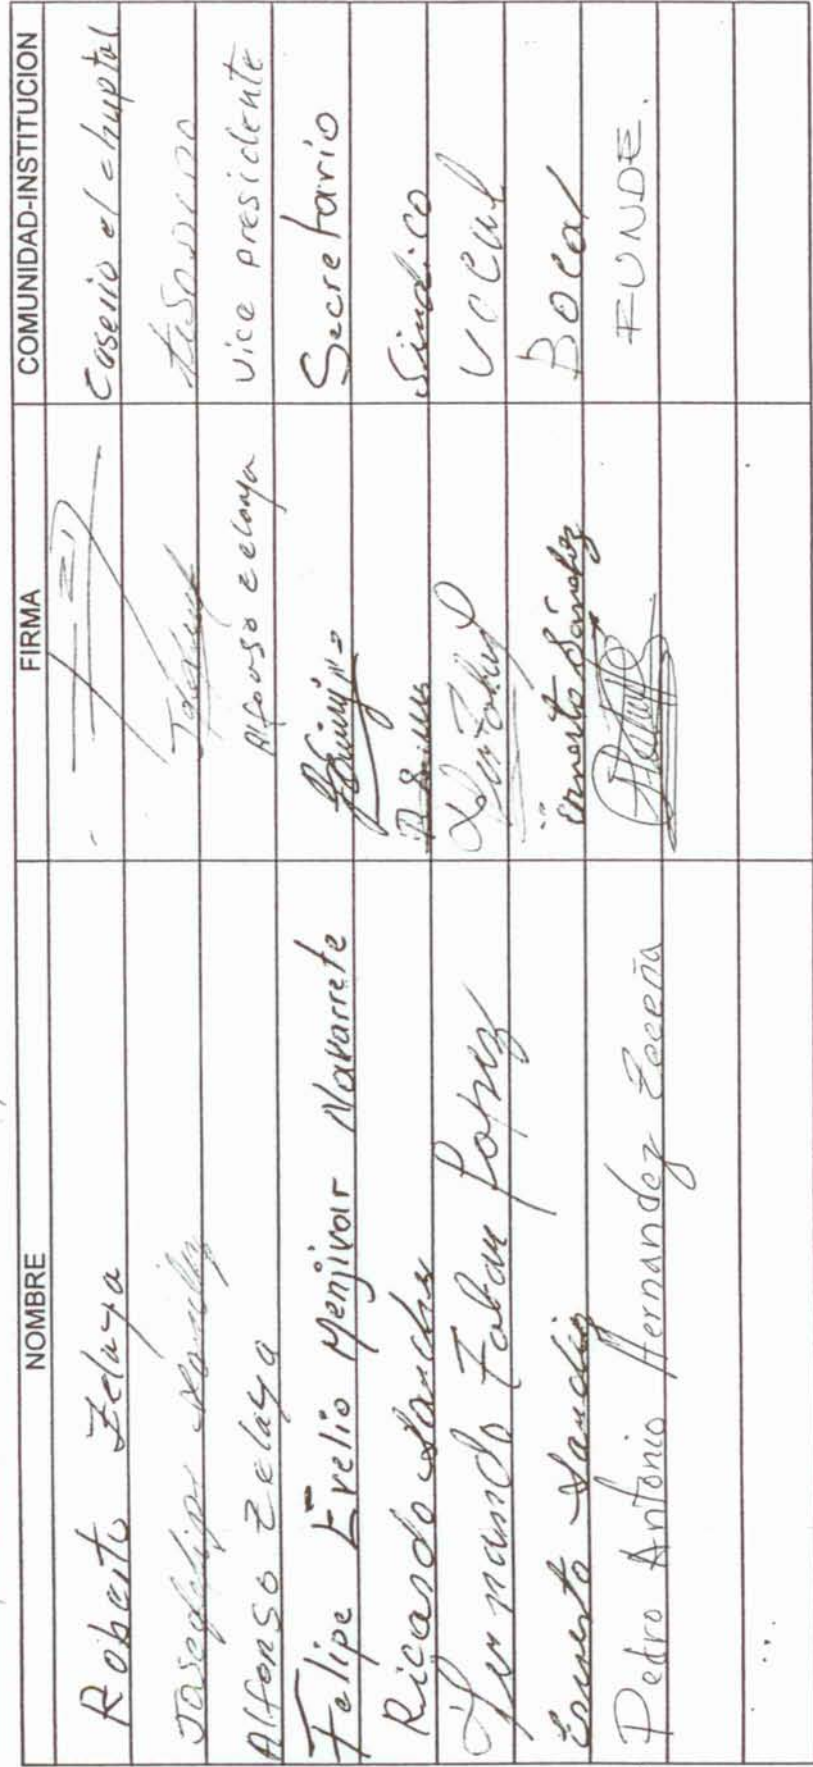 NOMBRE FIRMA COMUNIDAD-INSTITUCION
Roberto Zelaya Caserio el chuptal
Jose felipe tesorero
Alfonso Zelaya Alfonso zelaya Vice presidente
Felipe Evelio Menjivar Navarrete Secretario
Ricardo Sanchez Sindico
Fernando Fabian Lopez vocal
Ernesto Sanchez Ernesto Sánchez Bocal
Pedro Antonio Hernandez Zeceña FUNDE.